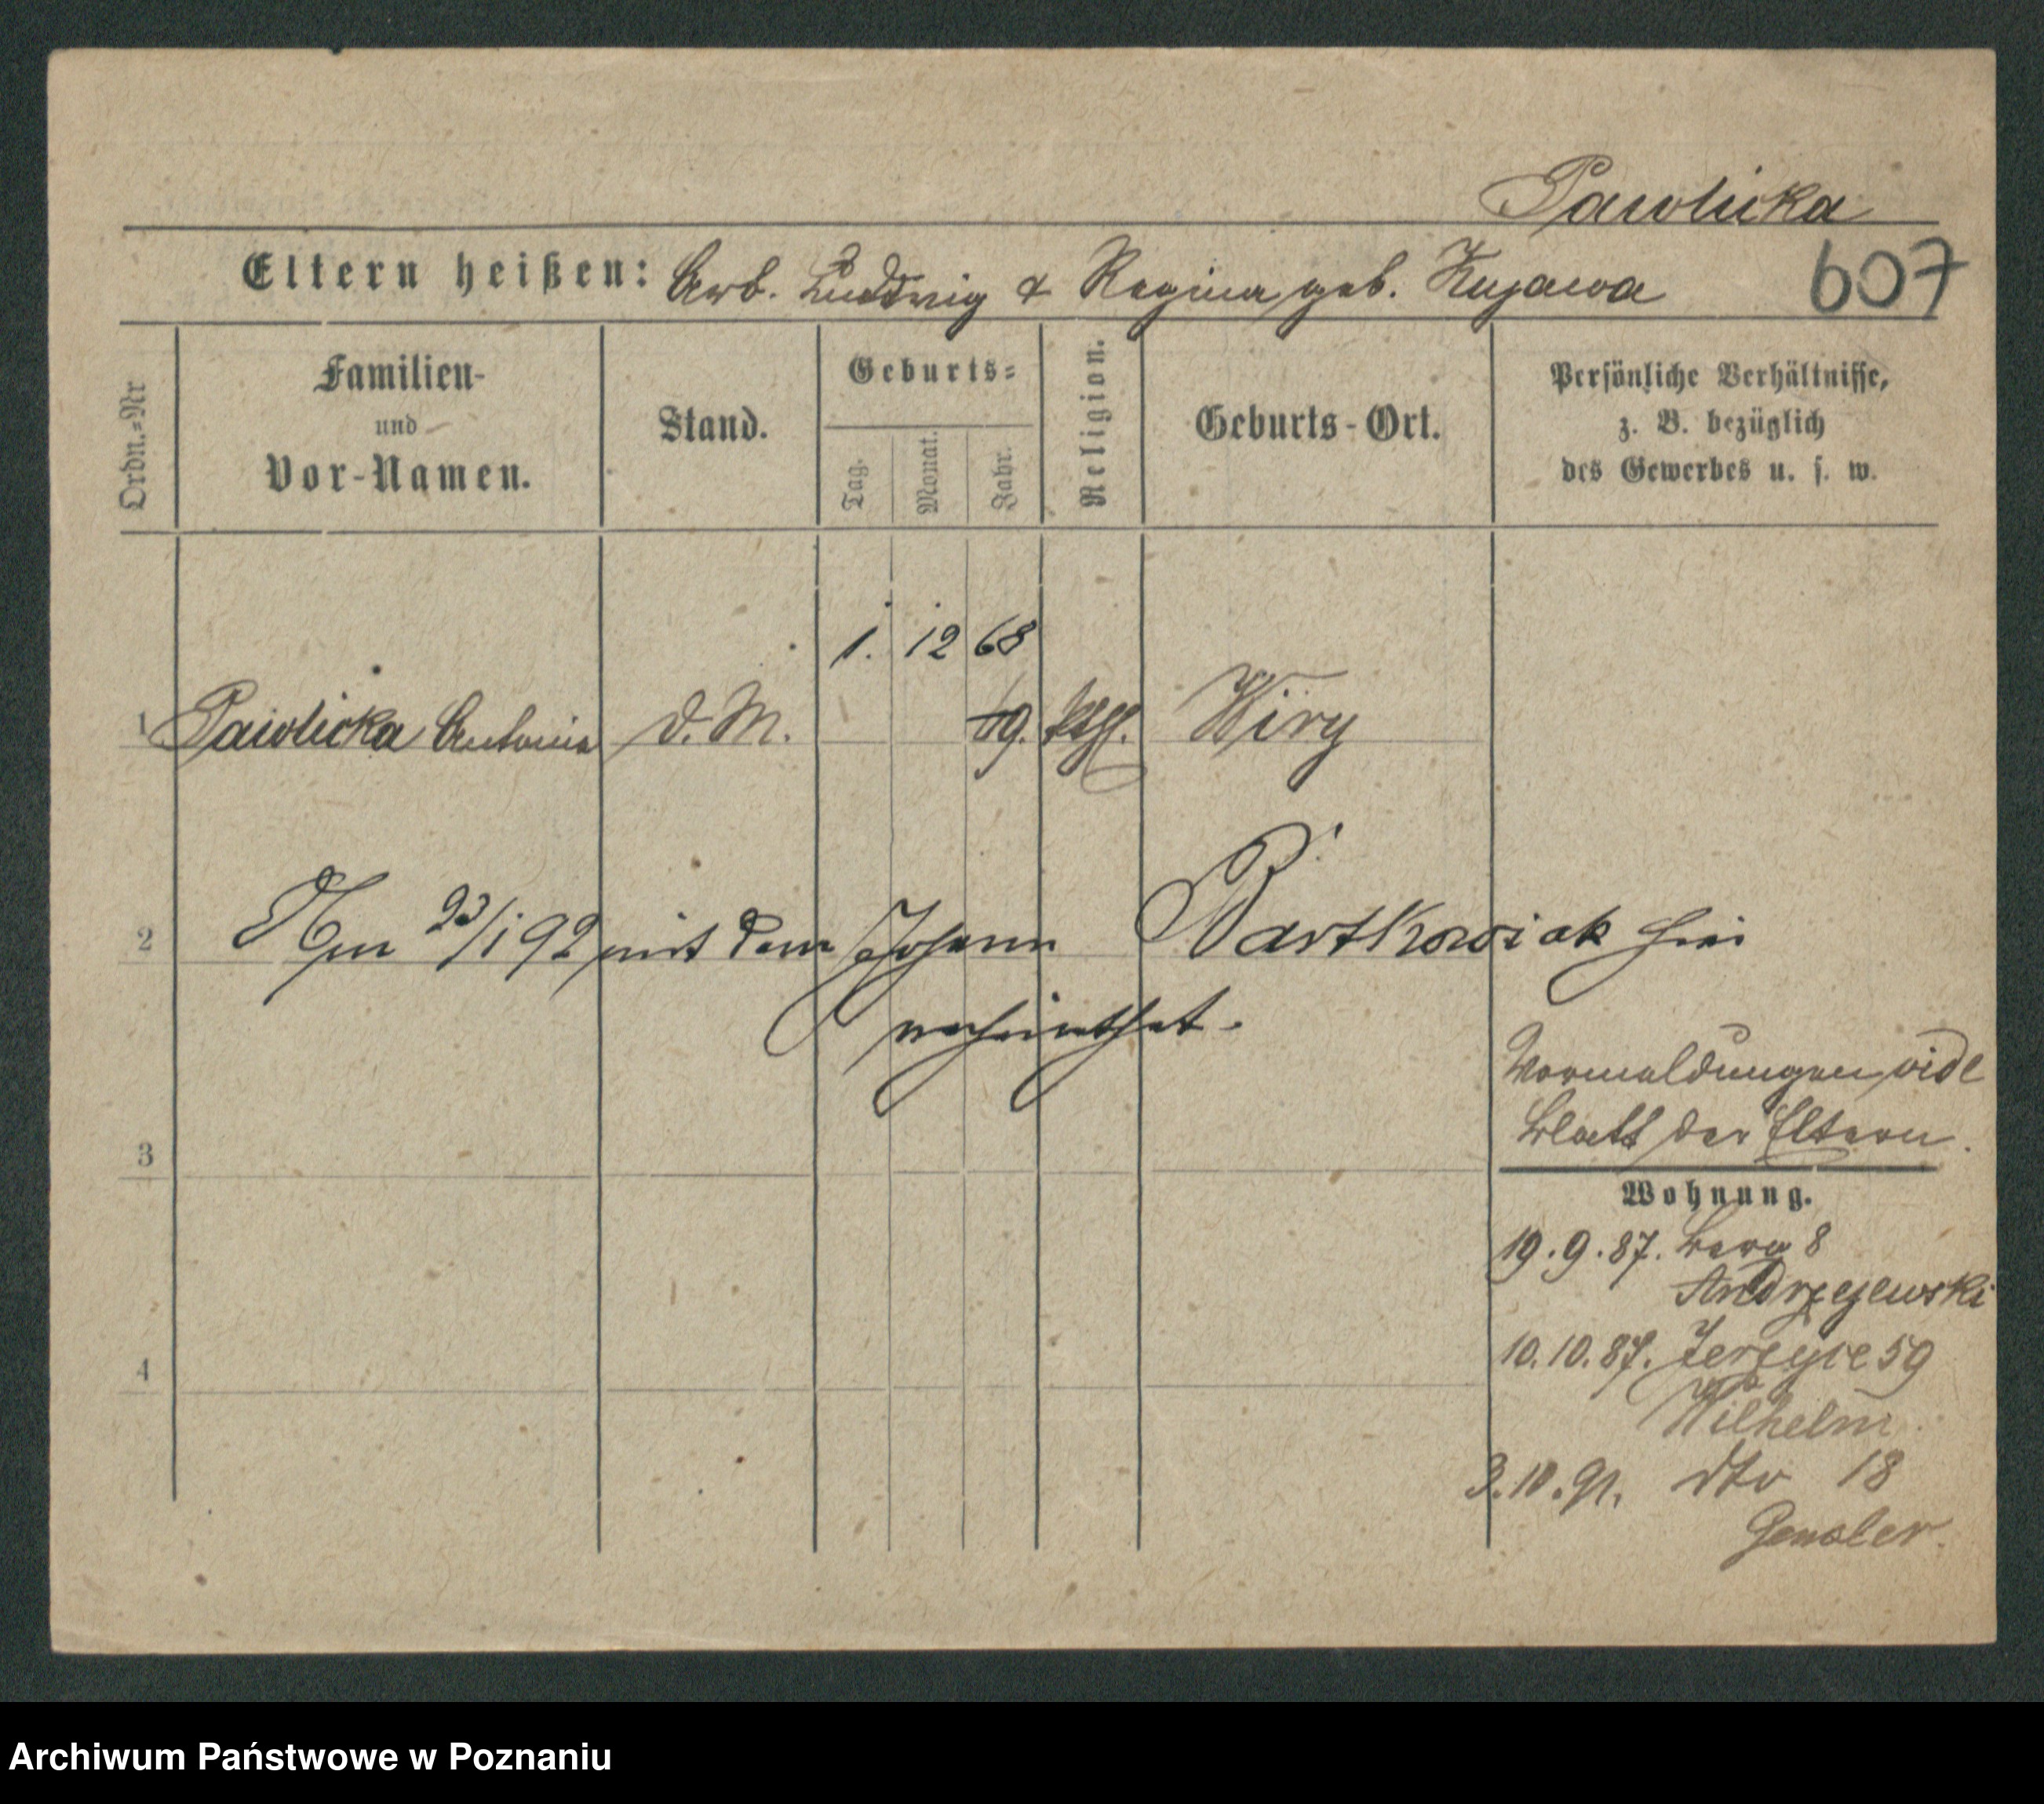 Pawlicka
Eltern heißen: Arb. Ludwig & Regina geb. Kujawa 607
Ordn.-Nr
Familien-
und
Vor-Namen.
Stand.
Geburts-
Tag.
Monat.
Jahr.
Religion.
Geburts-Ort.
Persönliche Verhältnisse,
z. B. bezüglich
des Gewerbes u. s. w.
1. 12 68
1 Pawlicka Antonia d. M. 69. kth. Wiry
2 Am 23/1 92 mit dem Johann Bartkowiak hier
verheirathet.
Vormeldungen vide
Blatt der Eltern.
3
Wohnung.
19.9.87. Berg 8
Andrzejewski
10.10.87. Jerzyce 59
Wilhelm
4
3.10.91. dto 18
Gensler.
Archiwum Państwowe w Poznaniu